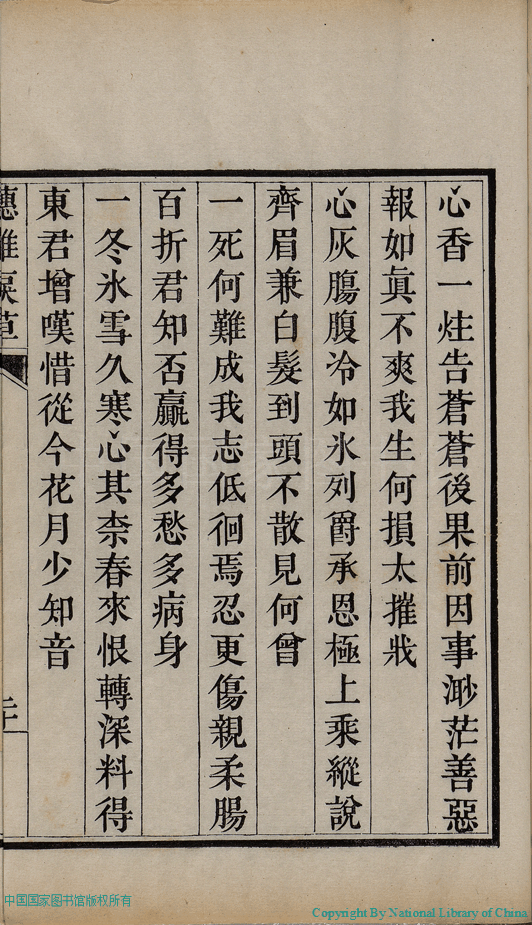 心香一炷告蒼蒼後果前因事渺茫善惡
報如眞不爽我生何損太摧戕
心灰腸腹冷如氷列爵承恩極上乘縱說
齊眉兼白髮到頭不散見何曾
一死何難成我志低徊焉忍更傷親柔腸
百折君知否贏得多愁多病身
一冬氷雪久寒心其柰春來恨轉深料得
東君增嘆惜從今花月少知音
中国国家图书馆版权所有
Copyright By National Library of China